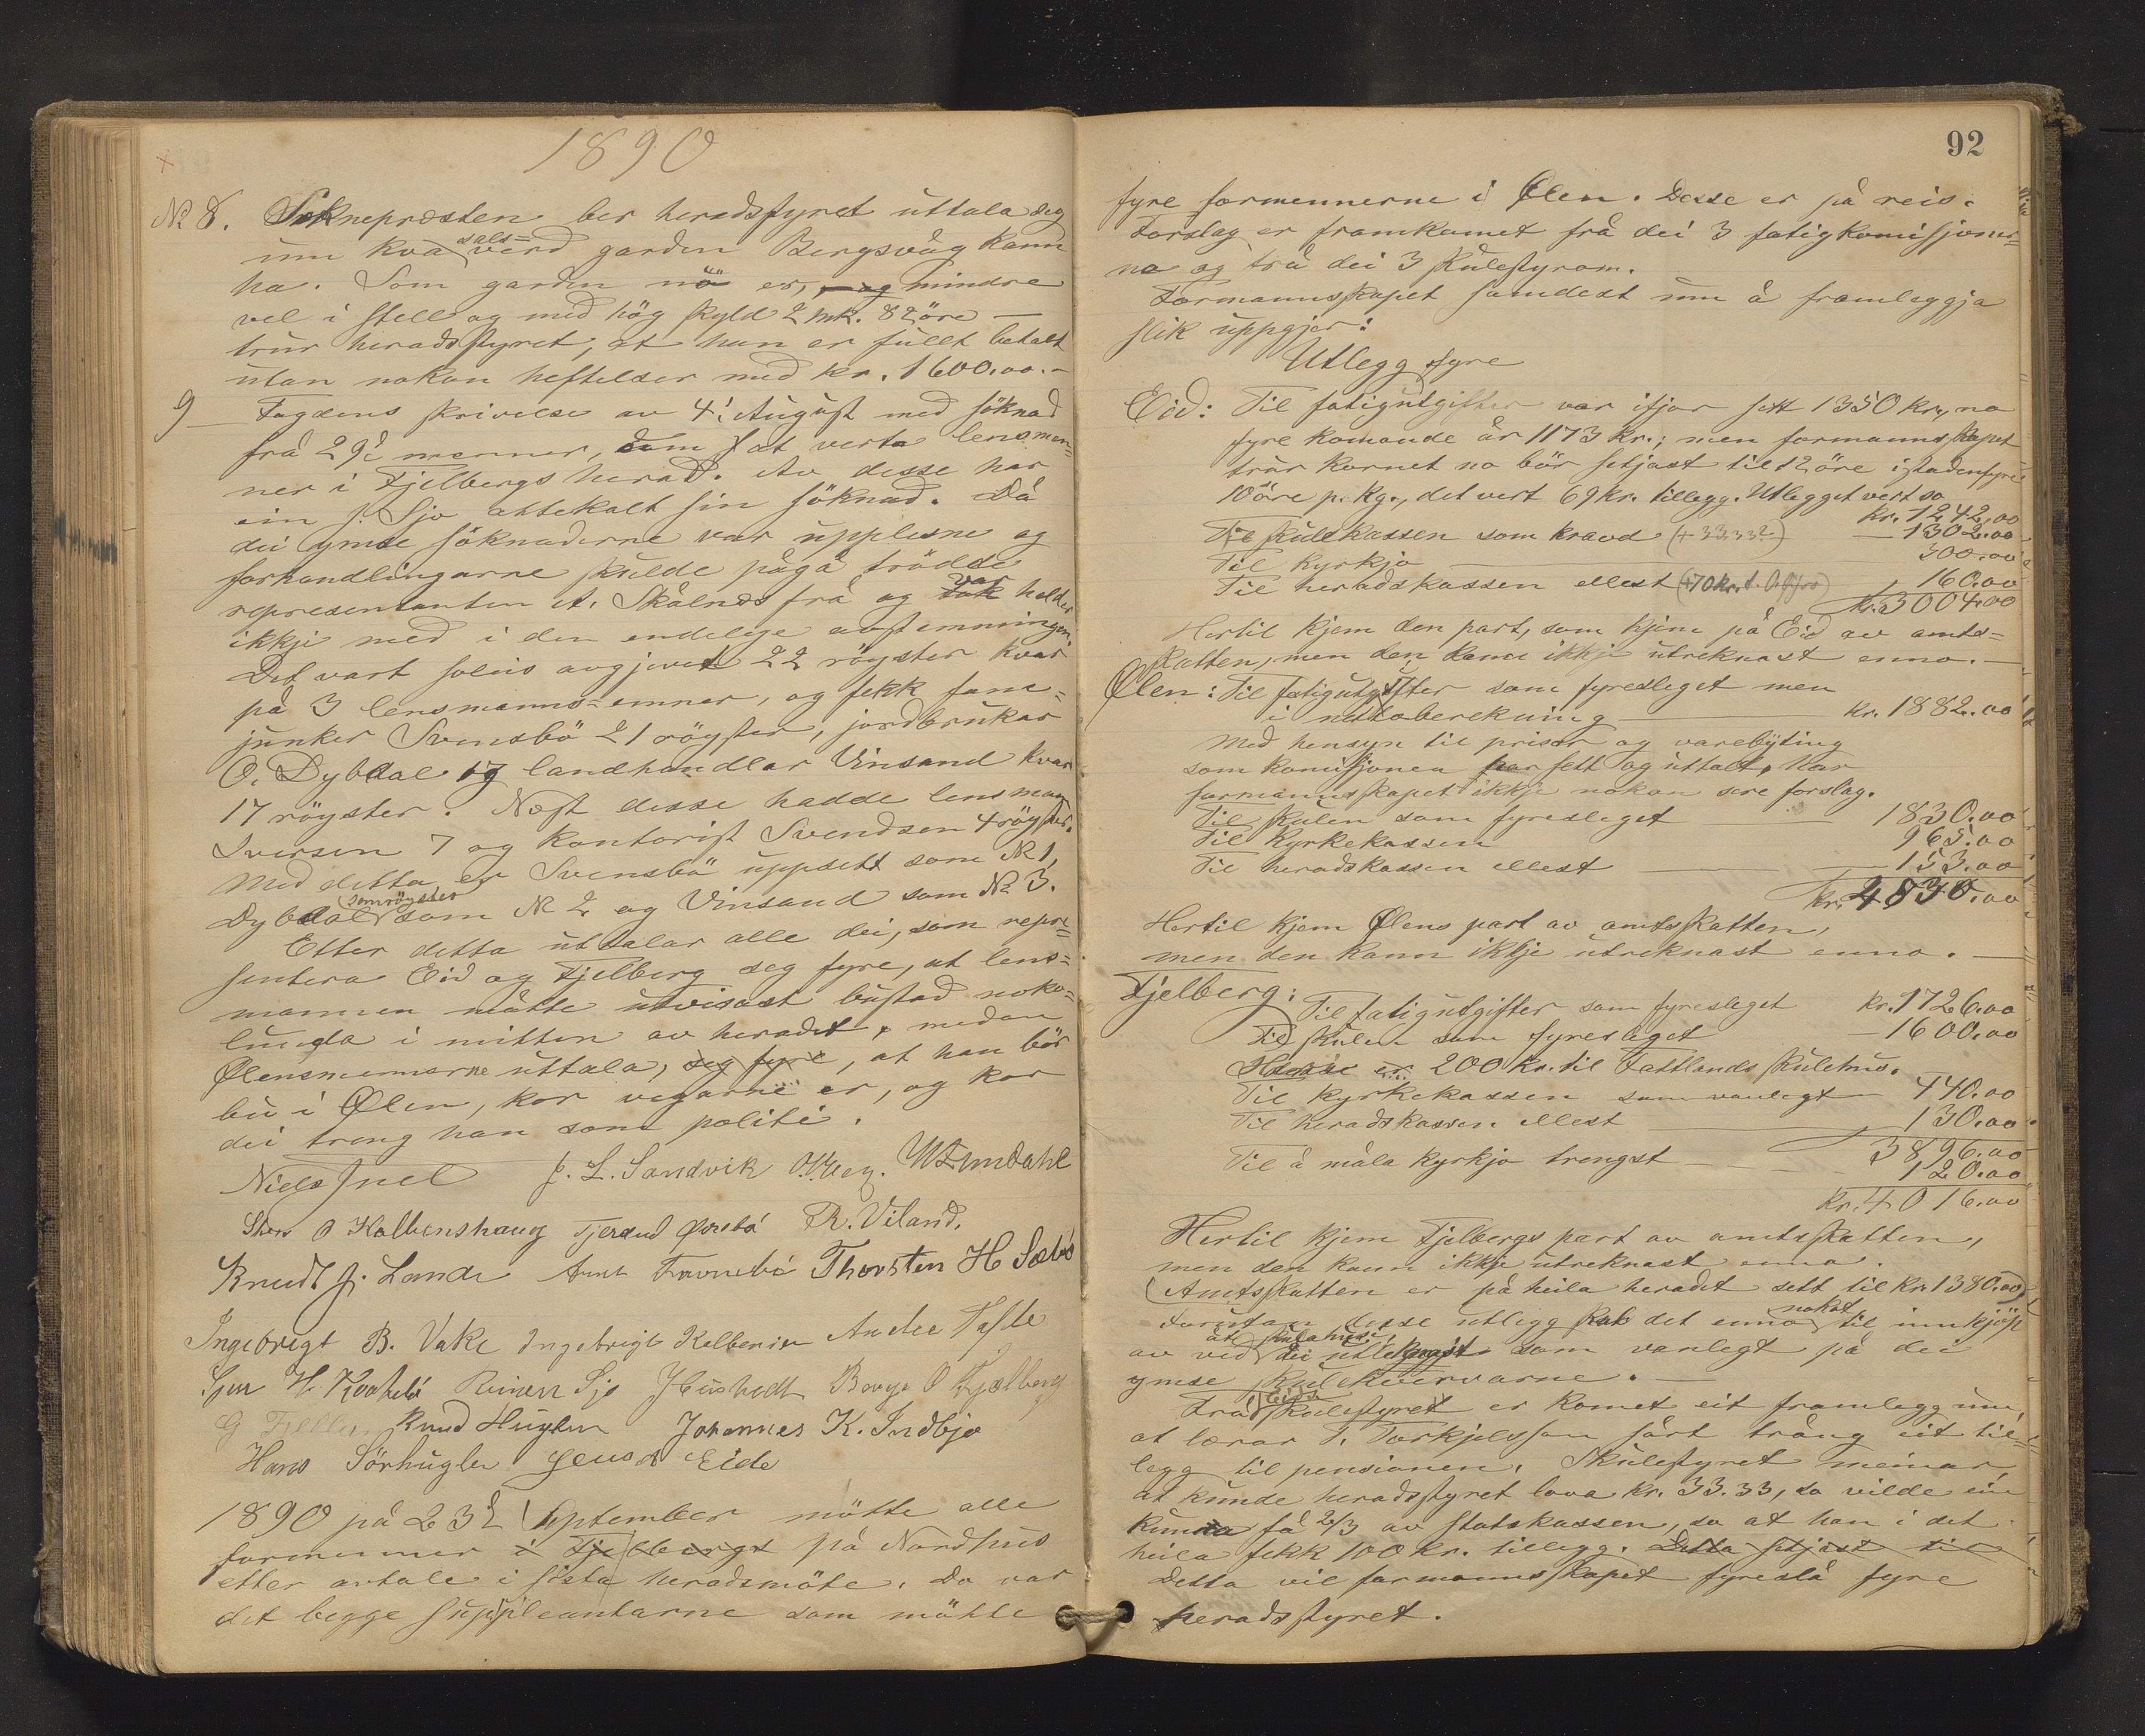 1890
№ 8. Soknepræsten ber heradsstyret uttala seg
um kva sals=verd garden Bergsvåg kann
ha. Som garden nö er, og mindre
vel i stell og med hög skyld 2 mk. 82 öre —
trur heradsstyret, at han er fullt betalt
utan nokon heftelser med kr. 1600.00.-
9 — Fogdens skrivelse av 4. August med söknad
frå 29 menner, um at verta lensmen=
ner i Fjelbergs herad. Av desse har
ein J. Sjo attekalt sin söknad. Då
dei ymse söknaderne var upplesne og
forhandlingarne skulde pågå, trödde
representanten A. Skålnes frå og var helder
ikkje med i den endelige avstemmningen.
Det vart soleis avgjevet 22 röyster kvar
på 3 lensmanns=emner, og fekk fane=
junker Svensbö 21 röyster, jordbrukar
O. Dybdal og landhandlar Vinsand kvar
17 röyster. Næst desse hadde lensmann
Iversen 7 og kontorist Svendsen 4 röyster.
Med detta er Svensbö uppsett som № 1,
Dybdal (som röyster) som № 2 og Vinsand som № 3.
Etter detta uttalar alle dei, som repre=
sentera Eid og Fjelberg seg fyre, at lens=
mannen måtte utvisast bustad noko=
lunda i mitten av heradet, medan
Ölensmennerne uttala, seg fyre, at han bör
bu i Ölen, kor vegarne er, og kor
dei treng han som politi.
Niels Juel J. L. Sandvik W Lundahl
O Kalbenshaug Tjerand R. Viland.
Knudt J. Lande Thorsten H Sæbö
Ingebrigt B. Vake Ingebrigt Kalbenes
H. Reinert Sjo Børge O Fjelberg
G Knud Huglen Johannes K. Indbjo
Hans Sörhuglen Jens Eide
1890 på 23 September mötte alle
formenner i Fjelbergs på Nordhus
etter avtale i sista heradsmöte. Då var
det begge suppleantarne som mötte
92
fyre formennerne i Ølen. Desse er på reis.
Forslag er framkomet frå dei 3 fatigkomisjoner=
na og frå dei 3 skulestyrom.
Formannskapet samdest um å framleggja
slik uppgjer:
Utlegg fyre
Eid: Til fatigutgifter var ifjor sett 1350 kr, no
fyre komande år 1173 kr.; men formannskapet
trur kornet no bör setjast til 12 öre istadenfyre
10 öre p. kg., det vert 69 kr. tillegg. Utlegget vert so
kr. 1242.00
Til skulekassen som kravd (+ 33.33?) — 1302.00
Til kyrkja — 300.00
Til heradskassen ellest (+70 kr. t. ) 160.00
kr. 3004.00
Hertil kjem den part, som kjem på Eid av amts=
skatten, men den kann ikkje utreknast enno. —
Ølen: Til fatigutgifter som fyresleget men
i nettoberekning — kr. 1882.00
Med hensyn til prisar og varebyting
som komisjonen har sett og uttalt, har
formannskapet ikkje nokon sere forslag.
Til skulen som fyresleget — 1830.00
Til kyrkekassen 965.00
Til heradskassen ellest — 153.00
kr. 4830.00
Hertil kjem Ølens part av amtsskatten,
men den kann ikkje utreknast enno. —
Fjelberg:
Til fatigutgifter som fyresleget kr. 1726.00
Til skulen som fyresleget — 1600.00
er 200 kr. til Fattlands skulehus.
Til kyrkekassen som vanlegt — 440.00
Til heradskassen ellest — 130.00
3896.00
Til å måla kyrkja trengst — 120.00
kr. 4016.00
Hertil kjem Fjelbergs part av amtsskatten,
men den kann ikkje utreknast enno.
(Amtsskatten er på heila heradet sett til kr. 1380.00)
Forutan desse utlegg skal det enno nokot til innkjöp
av ved åt skulehuse, dei utleggjast som vanlegt på dei
ymse skulekververne. —
Frå Eids skulestyret er komet eit framlegg um,
at lærar T. Torkjelsson sårt trång eit til=
legg til pensionen. Skulestyret meinar,
at kunde heradsstyret lova kr. 33.33, so vilde ein
kunna få 2/3 av statskassen, so at han i det
heila fekk 100 kr. tillegg. Detta setjast til
Detta vil formannskapet fyreslå fyre
heradsstyret.